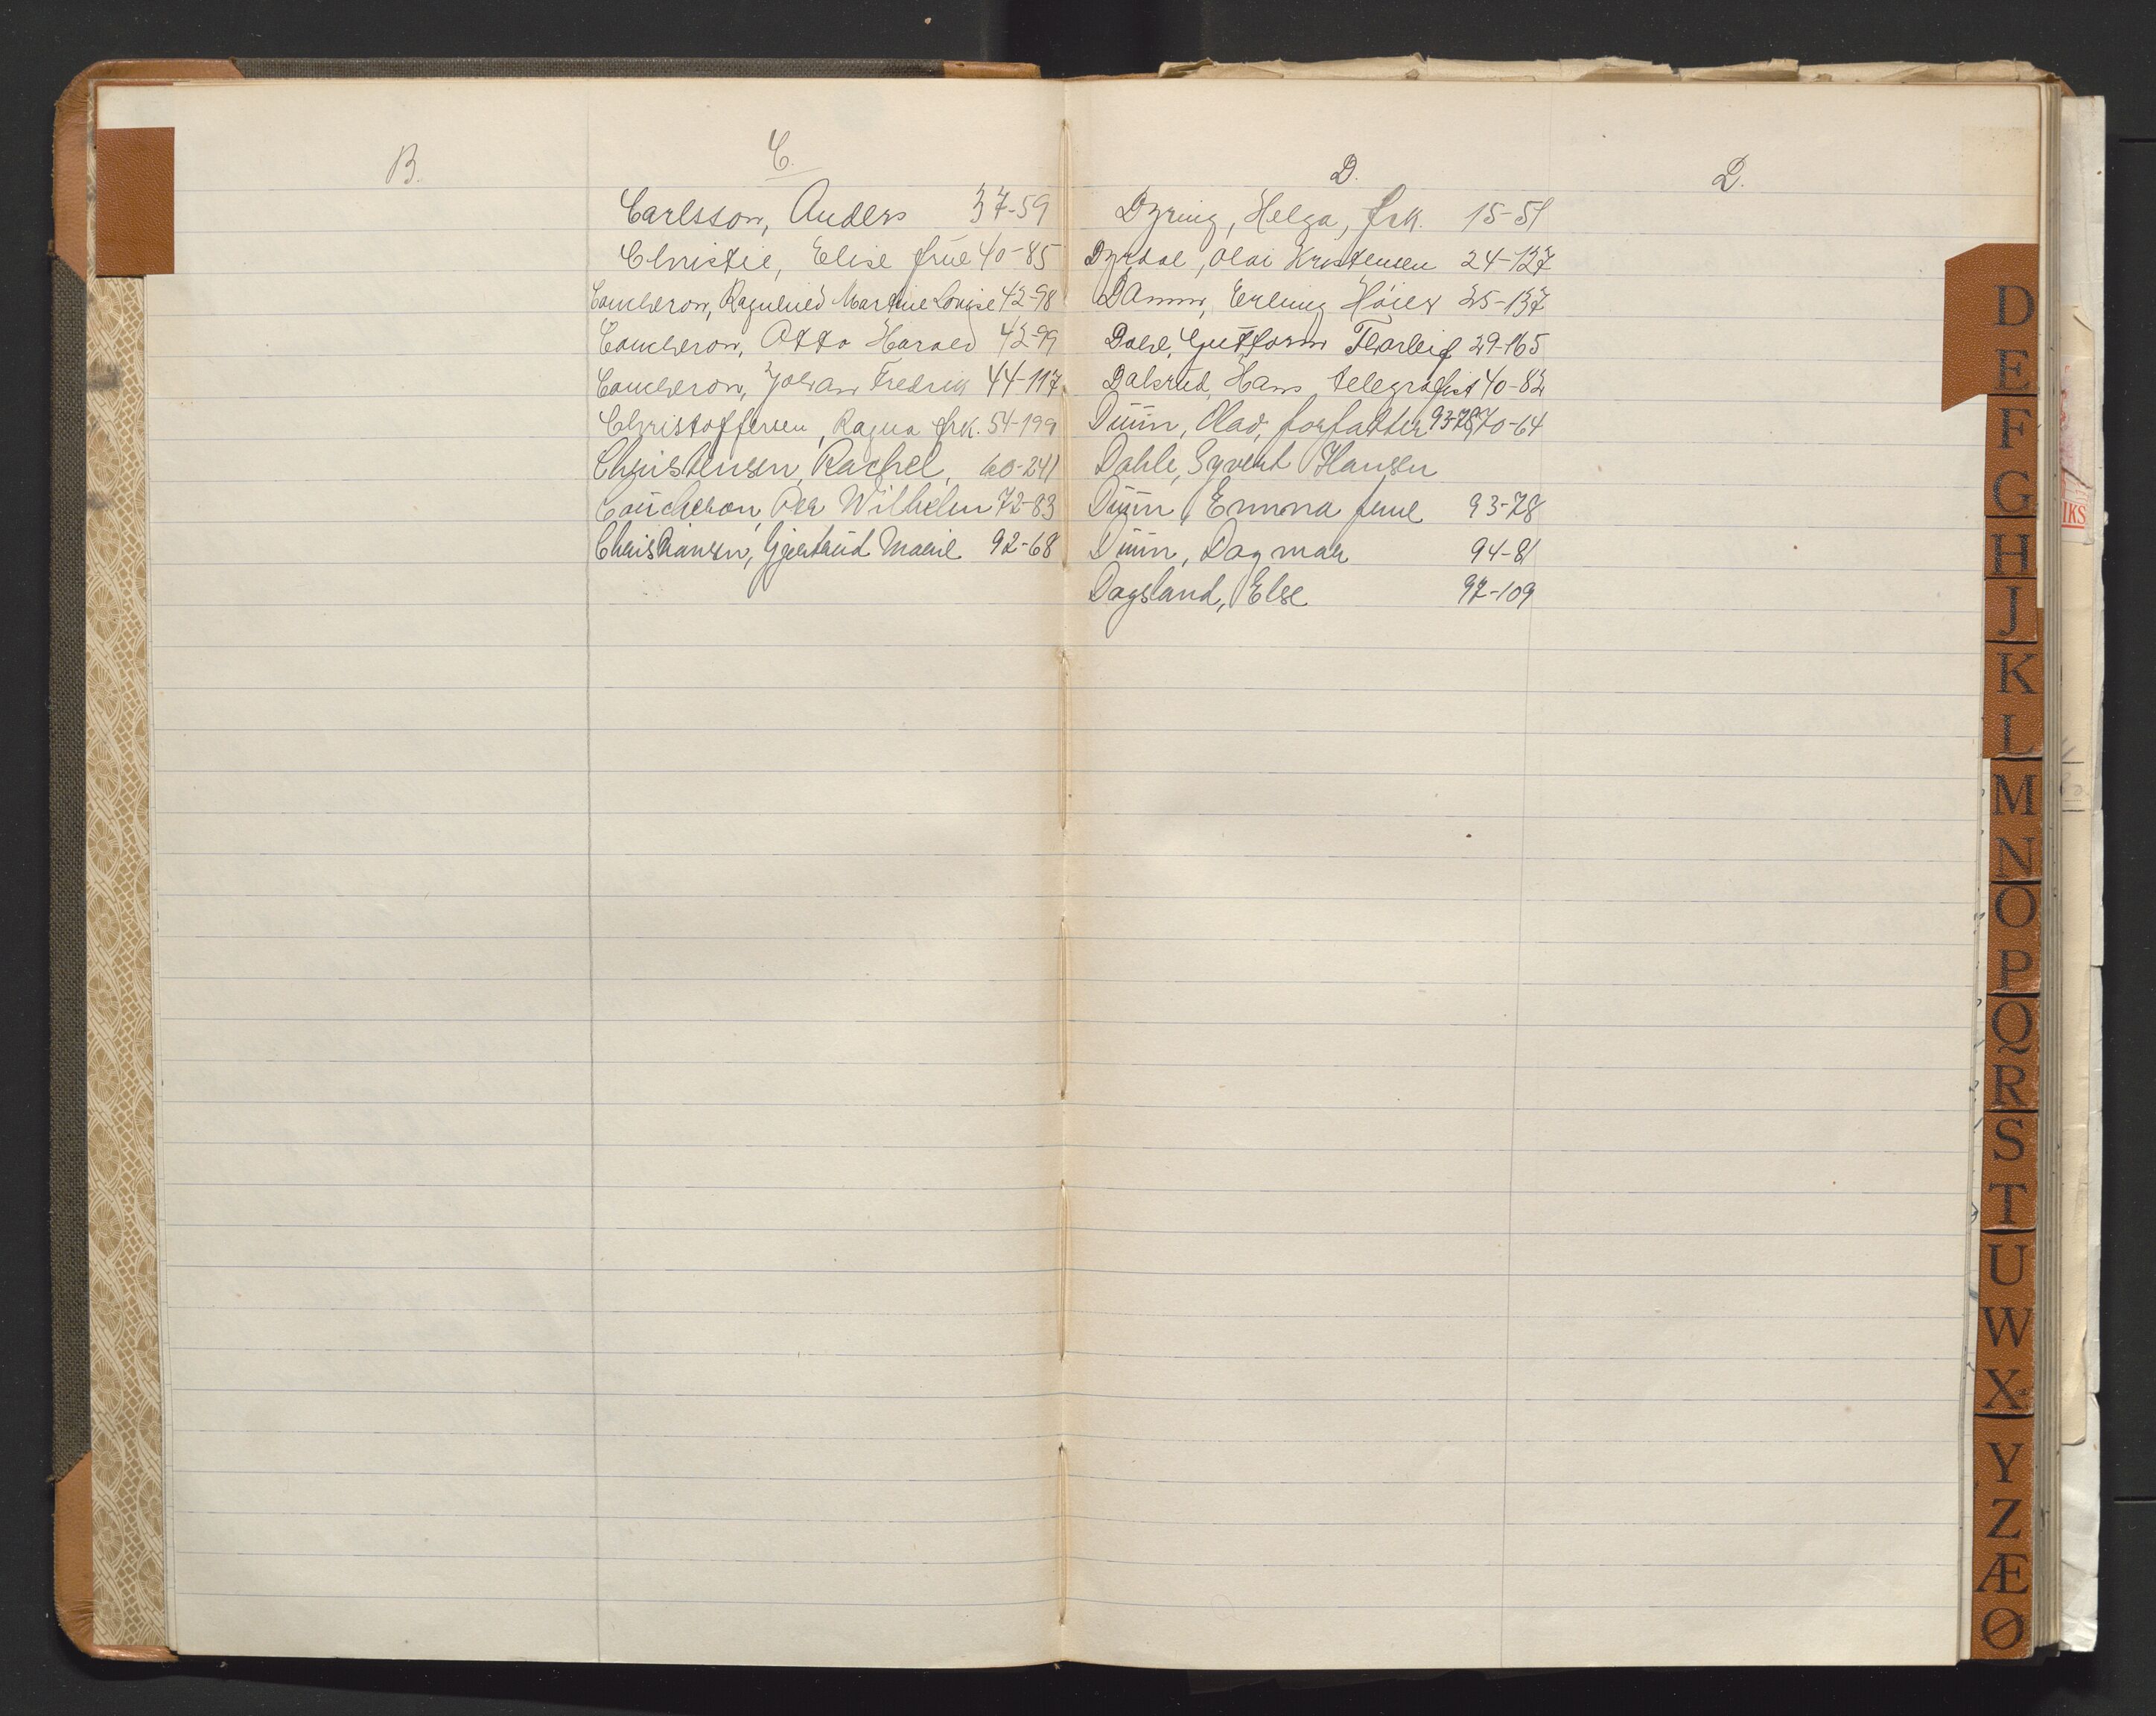 B.
C.
Carlsson, Anders 37-59
Christie, Elise frue 40-85
Coucheron, Ragnhild Martine Louise 42-98
Coucheron, Otto Harald 42-99
Coucheron, Johan Fredrik 44-117
Christoffersen, Ragna frk. 54-199
Christensen, Rachel, 60-241
Coucheron, Per Wilhelm 72-83
Christiansen, Gjertrud Marie 92-68
D.
Dyring, Helga, frk. 15-51
Dyrdal, Olai Kristensen 24-127
Damm, Erling Höier 25-137
Dahl, Guttorm Thorleif 29-165
Dalsrud, Hans telegrafist 40-82
Duun, Olav, forfatter 93-78, 70-64
Dahle, Syvert Hansen
Duun, Emma frue 93-78
Duun, Dagmar 94-81
Dagsland, Else 97-109
D.
D
E
F
G
H
J
K
L
M
N
O
P
Q
R
S
T
U
W
X
Y
Z
Æ
Ø
IKS